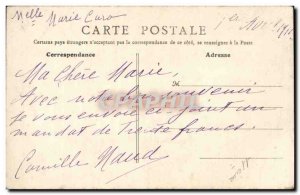 Melle Marie Caro
CARTE POSTALE
Certains pays étrangers n'acceptent pas la correspondance de ce côté, se renseigner à la Poste
Correspondance
Adresse
Ma Chère Marie,
M
Avec notre bon souvenir
je vous envoie ci-joint un
mandat de trente francs.
Camille